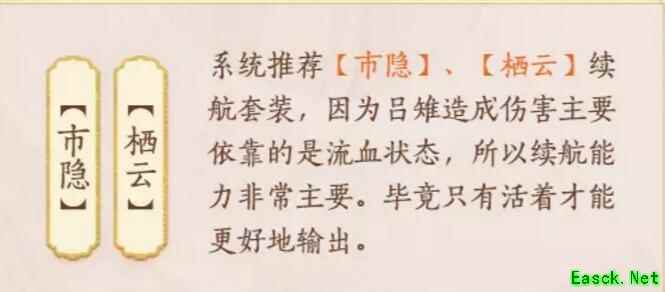 【市隐】
【栖云】
系统推荐【市隐】、【栖云】续
航套装，因为吕雉造成伤害主要
依靠的是流血状态，所以续航能
力非常主要。毕竟只有活着才能
更好地输出。
Easck.Net